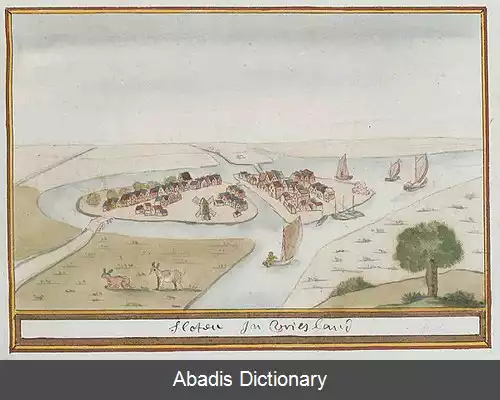 Sloten In Vriesland
Abadis Dictionary